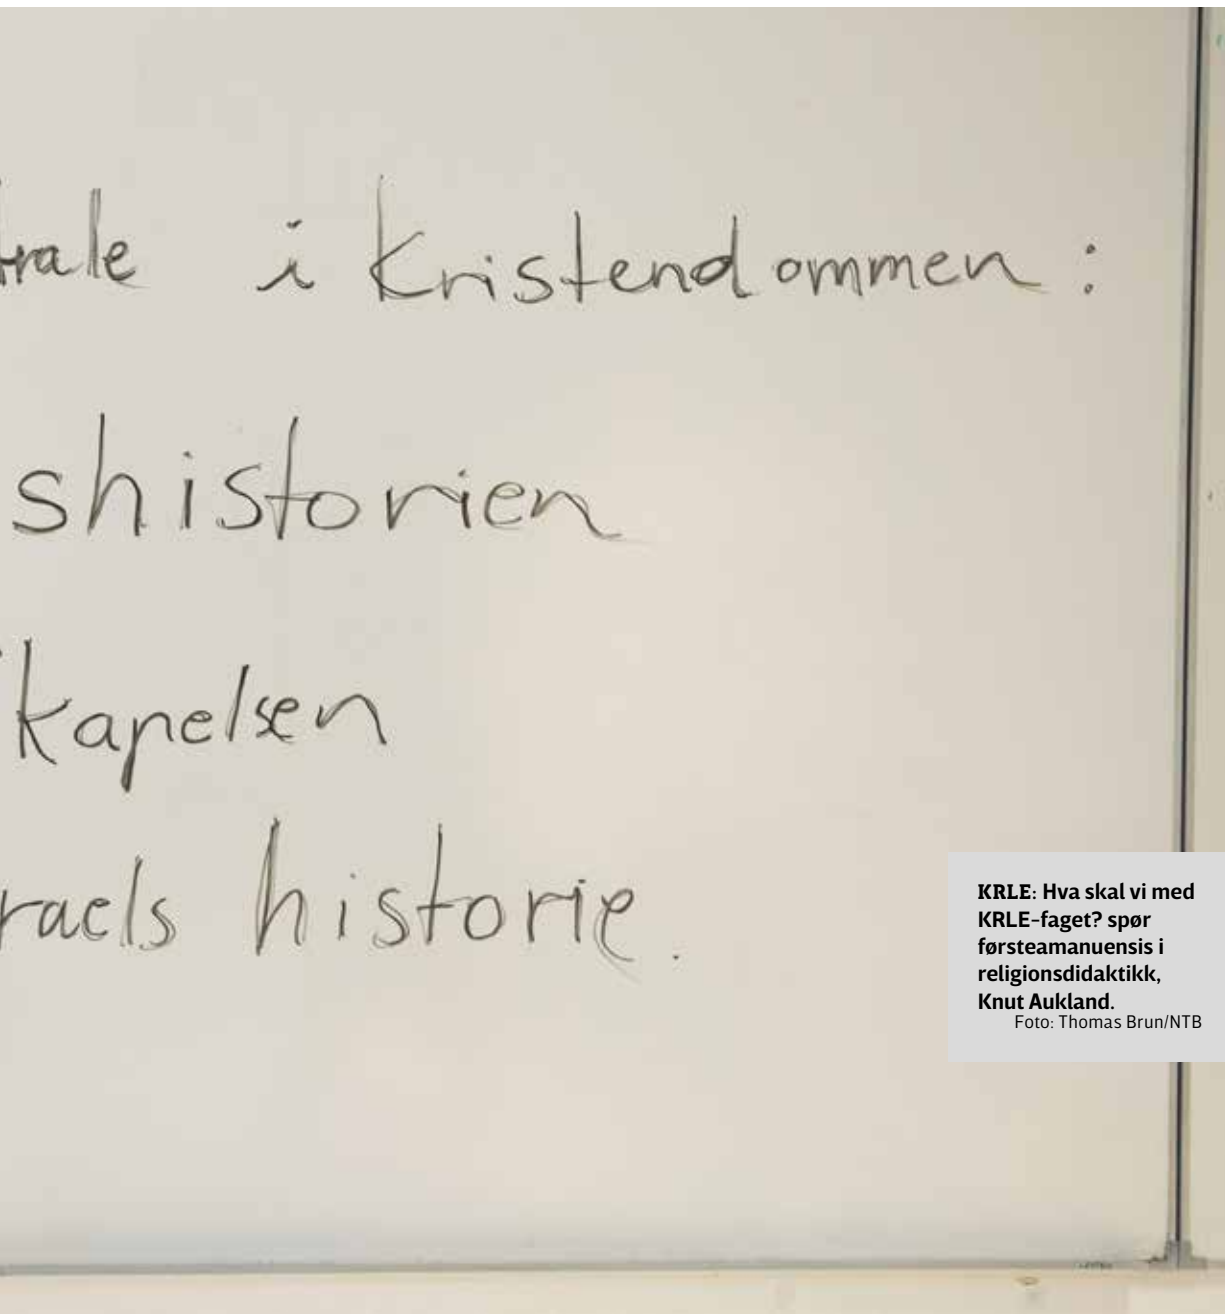 trale i Kristendommen :
shistorien
kapelsen
raels historie.
KRLE: Hva skal vi med
KRLE-faget? spør
førsteamanuensis i
religionsdidaktikk,
Knut Aukland.
Foto: Thomas Brun/NTB